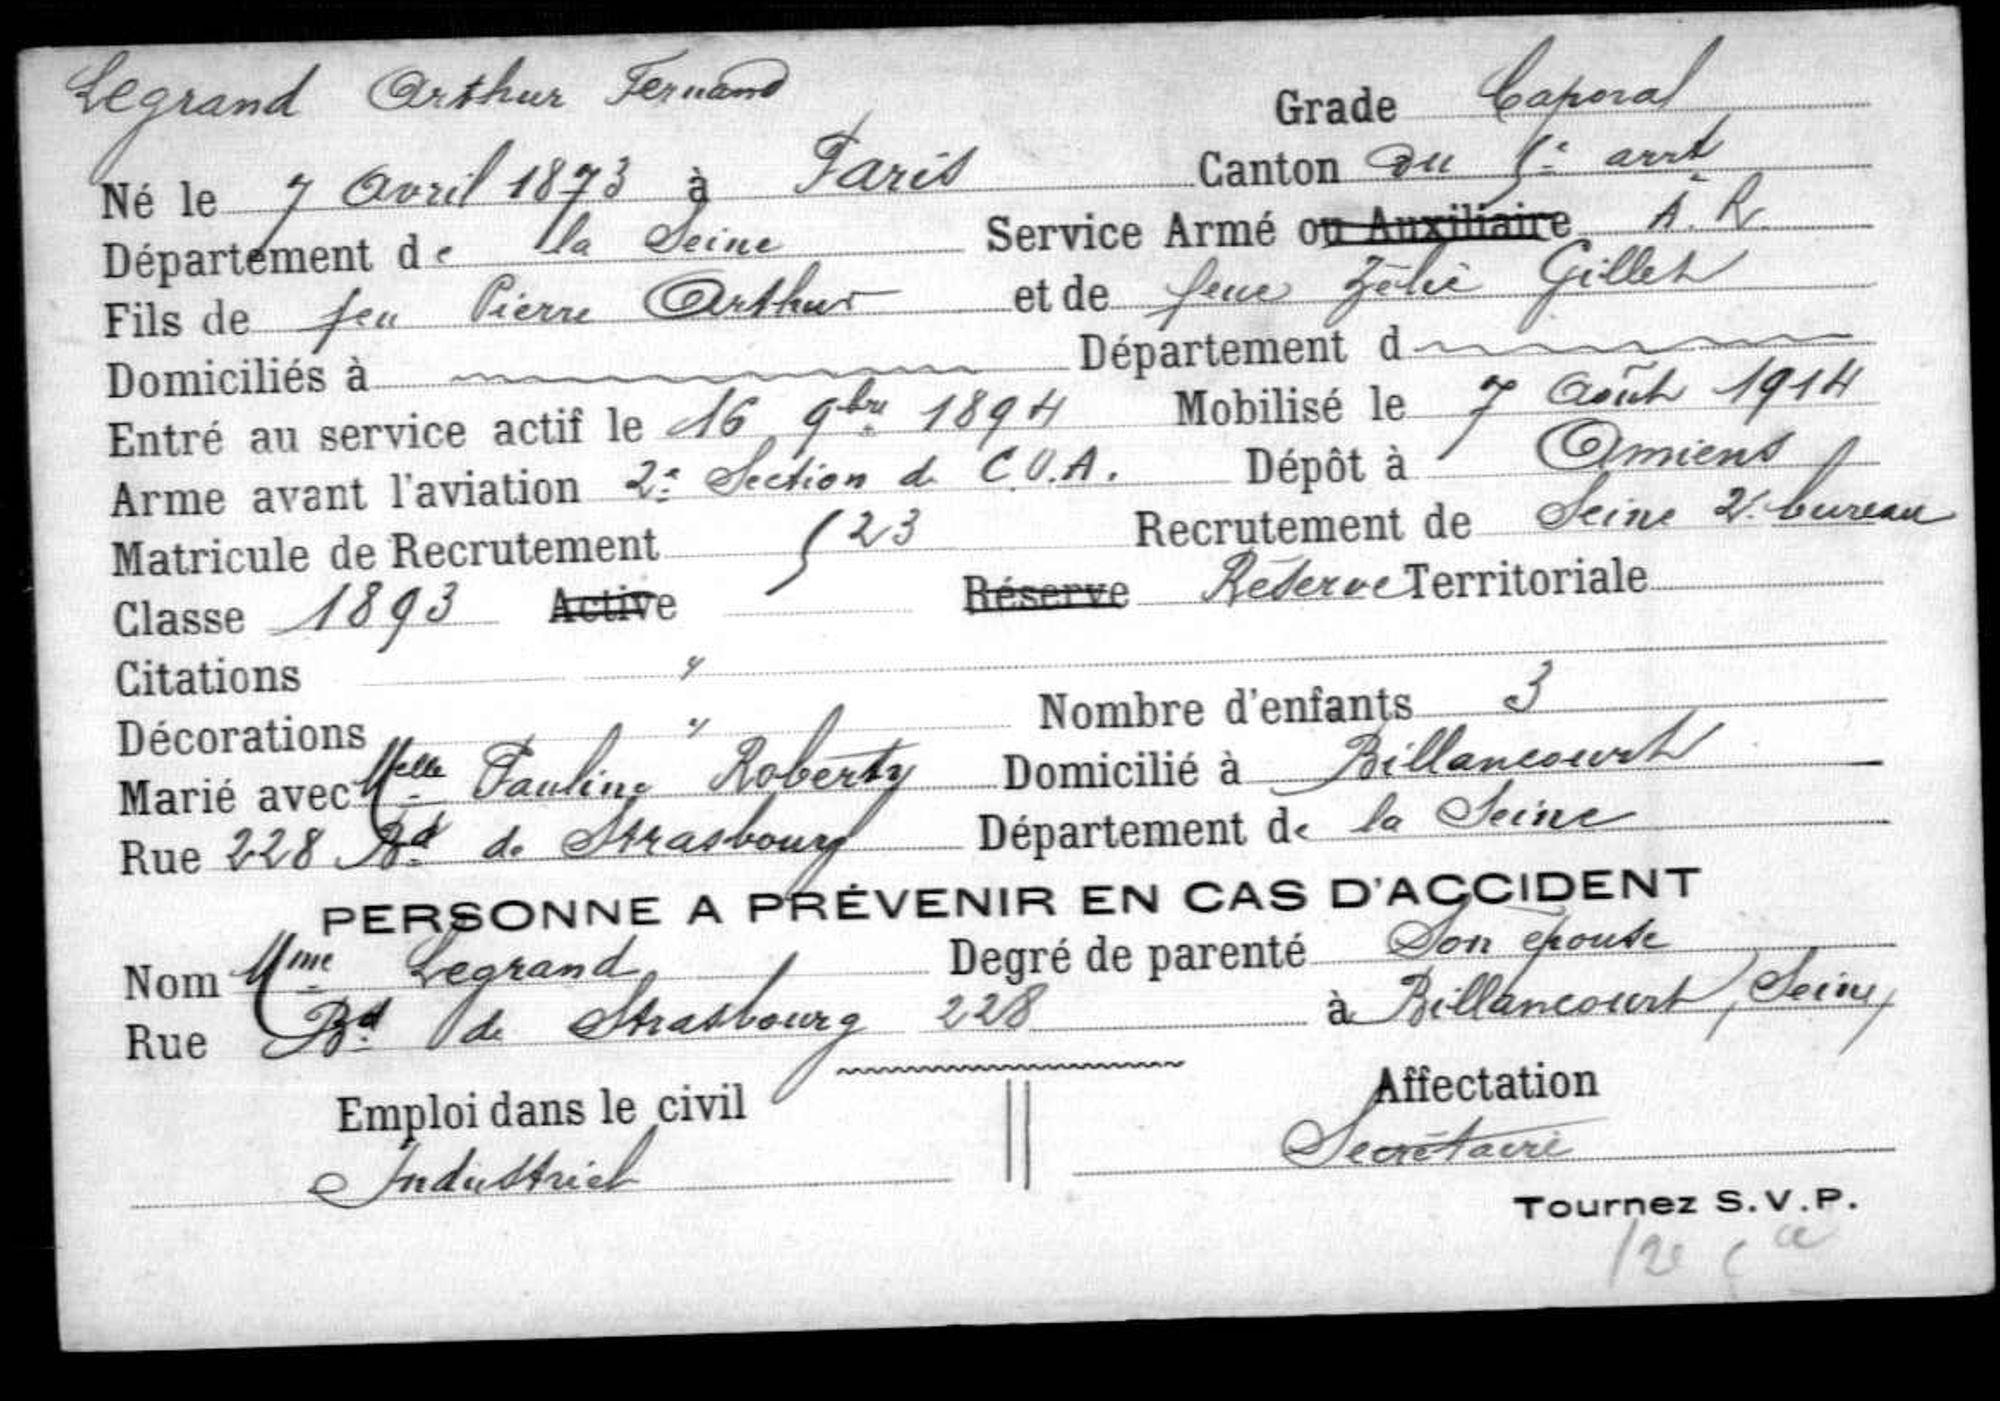 Legrand Arthur Fernand Grade Caporal
Né le 7 Avril 1873 à Paris Canton du 5e arrt
Département de la Seine Service Armé ou Auxiliaire A. R.
Fils de feu Pierre Arthur et de feue Zélie Gillet
Domiciliés à Département d
Entré au service actif le 16 9bre 1894 Mobilisé le 7 Août 1914
Arme avant l'aviation 2e Section de C.O.A. Dépôt à Amiens
Matricule de Recrutement 523 Recrutement de Seine 2e bureau
Classe 1893 Active Réserve Réserve Territoriale
Citations "
Décorations " Nombre d'enfants 3
Marié avec Melle Pauline Roberty Domicilié à Billancourt
Rue 228 Bd de Strasbourg Département de la Seine
PERSONNE A PRÉVENIR EN CAS D'ACCIDENT
Nom Mme Legrand Degré de parenté Son épouse
Rue Bd de Strasbourg 228 à Billancourt (Seine)
Emploi dans le civil Affectation
Industriel Secrétaire
Tournez S.V.P.